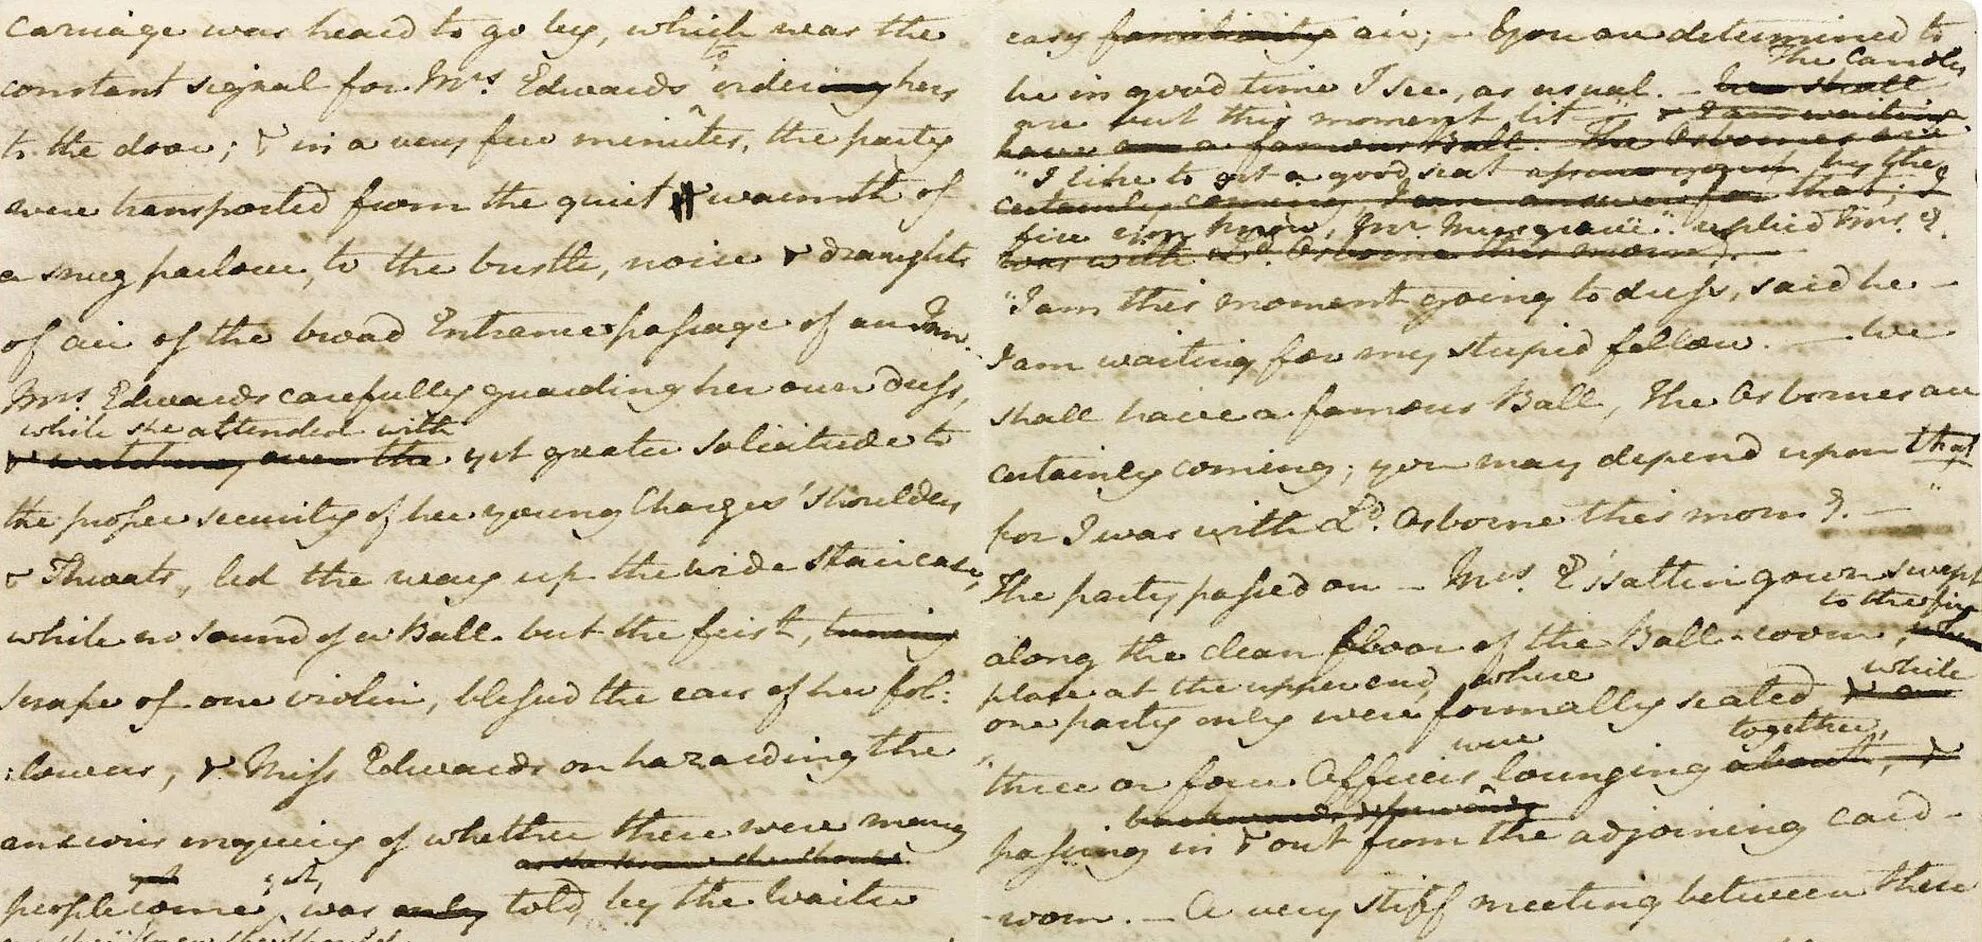 carriage was heard to go by, which was the
to
constant signal for Mrs. Edwards ordering hers
to the door; & in a very few minutes, the party
were transported from the quiet & warmth of
a snug parlour, to the bustle, noise & draughts
of air of the broad Entrance-passage of an Inn.
Mrs. Edwards carefully guarding her own dress,
while she attended with
& watching over the yet greater solicitude to
the proper security of her young Charges' shoulders
& Throats, led the way up the wide staircase,
while no sound of a Ball but the first, tuning
scrape of one violin, blessed the ears of her fol:
:lowers, & Miss Edwards on hazarding the
anxious enquiry of whether there were many
as she knew she should
got yet,
people come, was only told by the Waiter
as she knew she should
easy familiarity air; - "You are determined to
The Candles
be in good time I see, as usual. - we shall
are but this moment lit -" & I am waiting
have a famous Ball. The Osbornes are
"I like to get a good seat by the
certainly coming, I can answer for that; I
fire you know, Mr. Musgrave." replied Mrs. E.
was with Ld. Osborne this morng.
"I am this moment going to dress, said he -
I am waiting for my stupid fellow. - We
shall have a famous Ball, The Osbornes are
certainly coming; you may depend upon that
for I was with Ld. Osborne this morng. -"
The party passed on - Mrs. E's sattin gown swept
to the fire
along the clean floor of the Ball-room, when
place at the upper end, where
one party only were formally seated & an
while
three or four Officers were lounging about, &
together,
backwards & forwards
passing in & out from the adjoining card-
-room. - A very stiff meeting between these